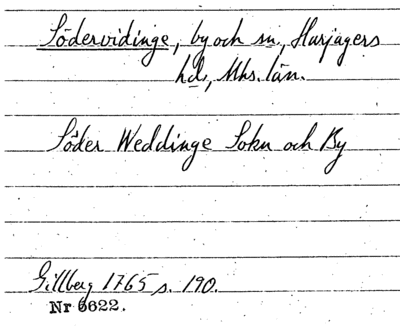 Södervidinge, by och sn., Harjagers
hd., Mhs. län.
Söder Weddinge Sokn och By
Gillberg 1765 s. 190.
Nr 6622.